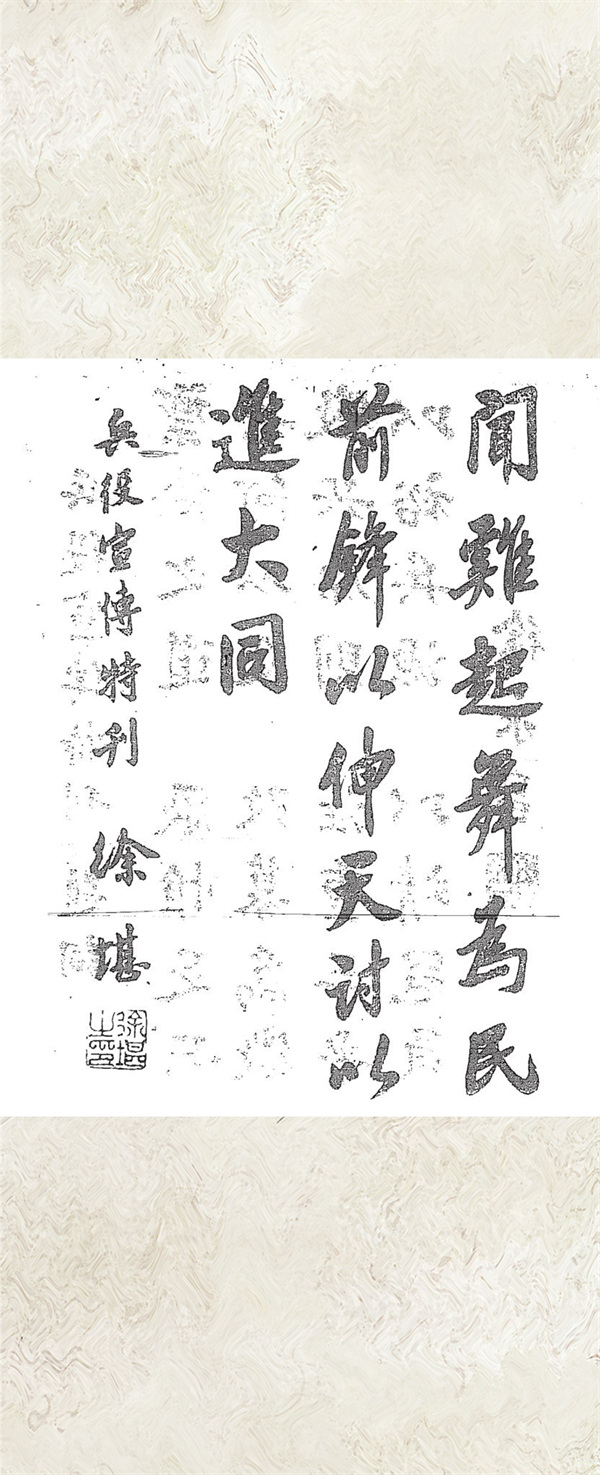 聞雞起舞為民
前鋒以伸天討以
進大同
兵役宣傳特刊 徐堪
徐堪之印